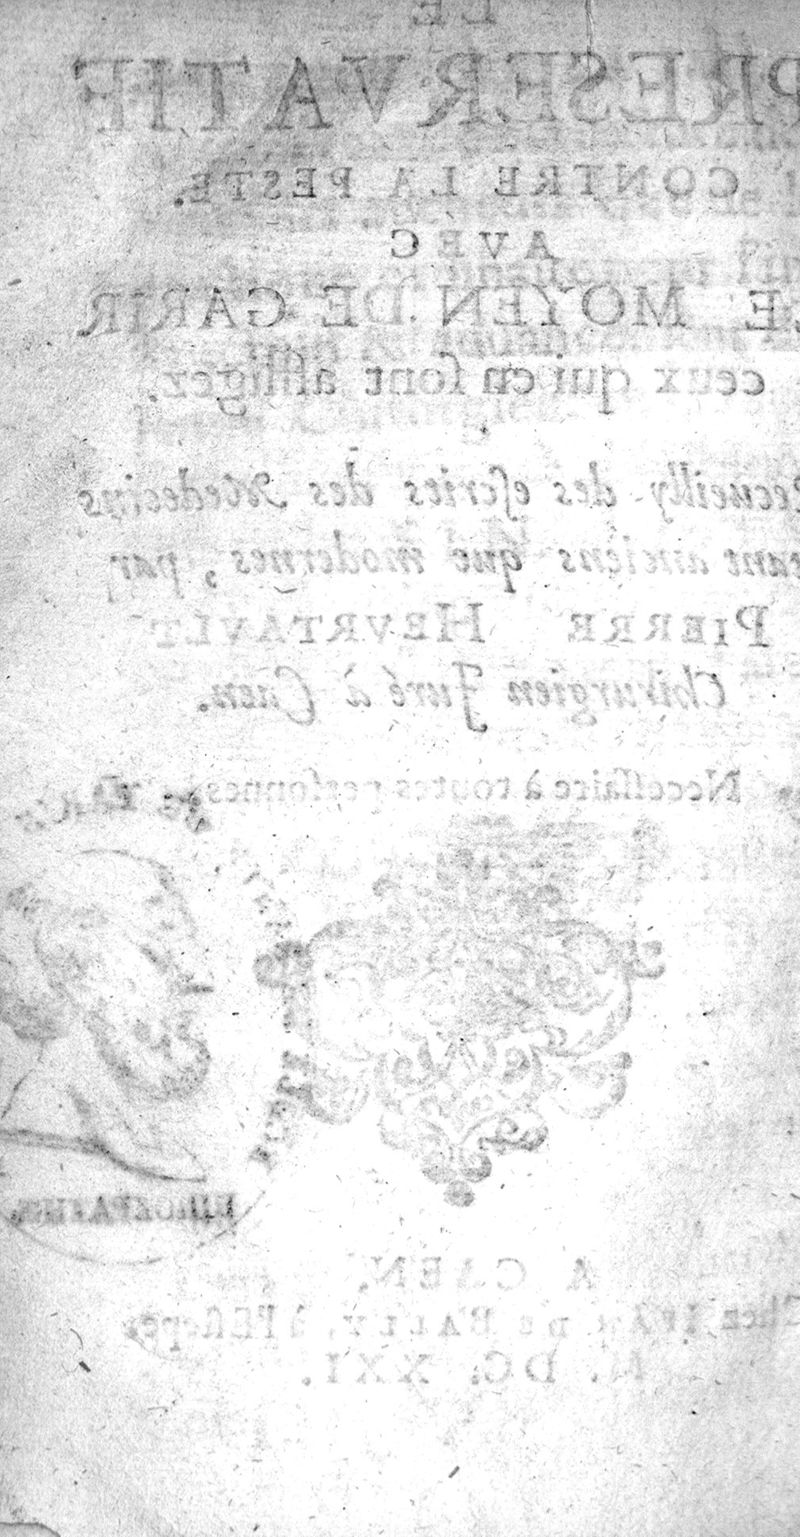 LE
PRESERVATIF
CONTRE LA PESTE.
AVEC
LE MOYEN DE GARIR
ceux qui en ſont affligez.
Recueilly des eſcrits des Medecins
tant anciens que modernes, par
PIERRE HEVRTAVLT
Chirurgien Juré à Caen.
Neceſſaire à toutes perſonnes.
A CAEN,
Chez IEAN DE BALLY, à l'Eſtepe,
M. DC. XXI.